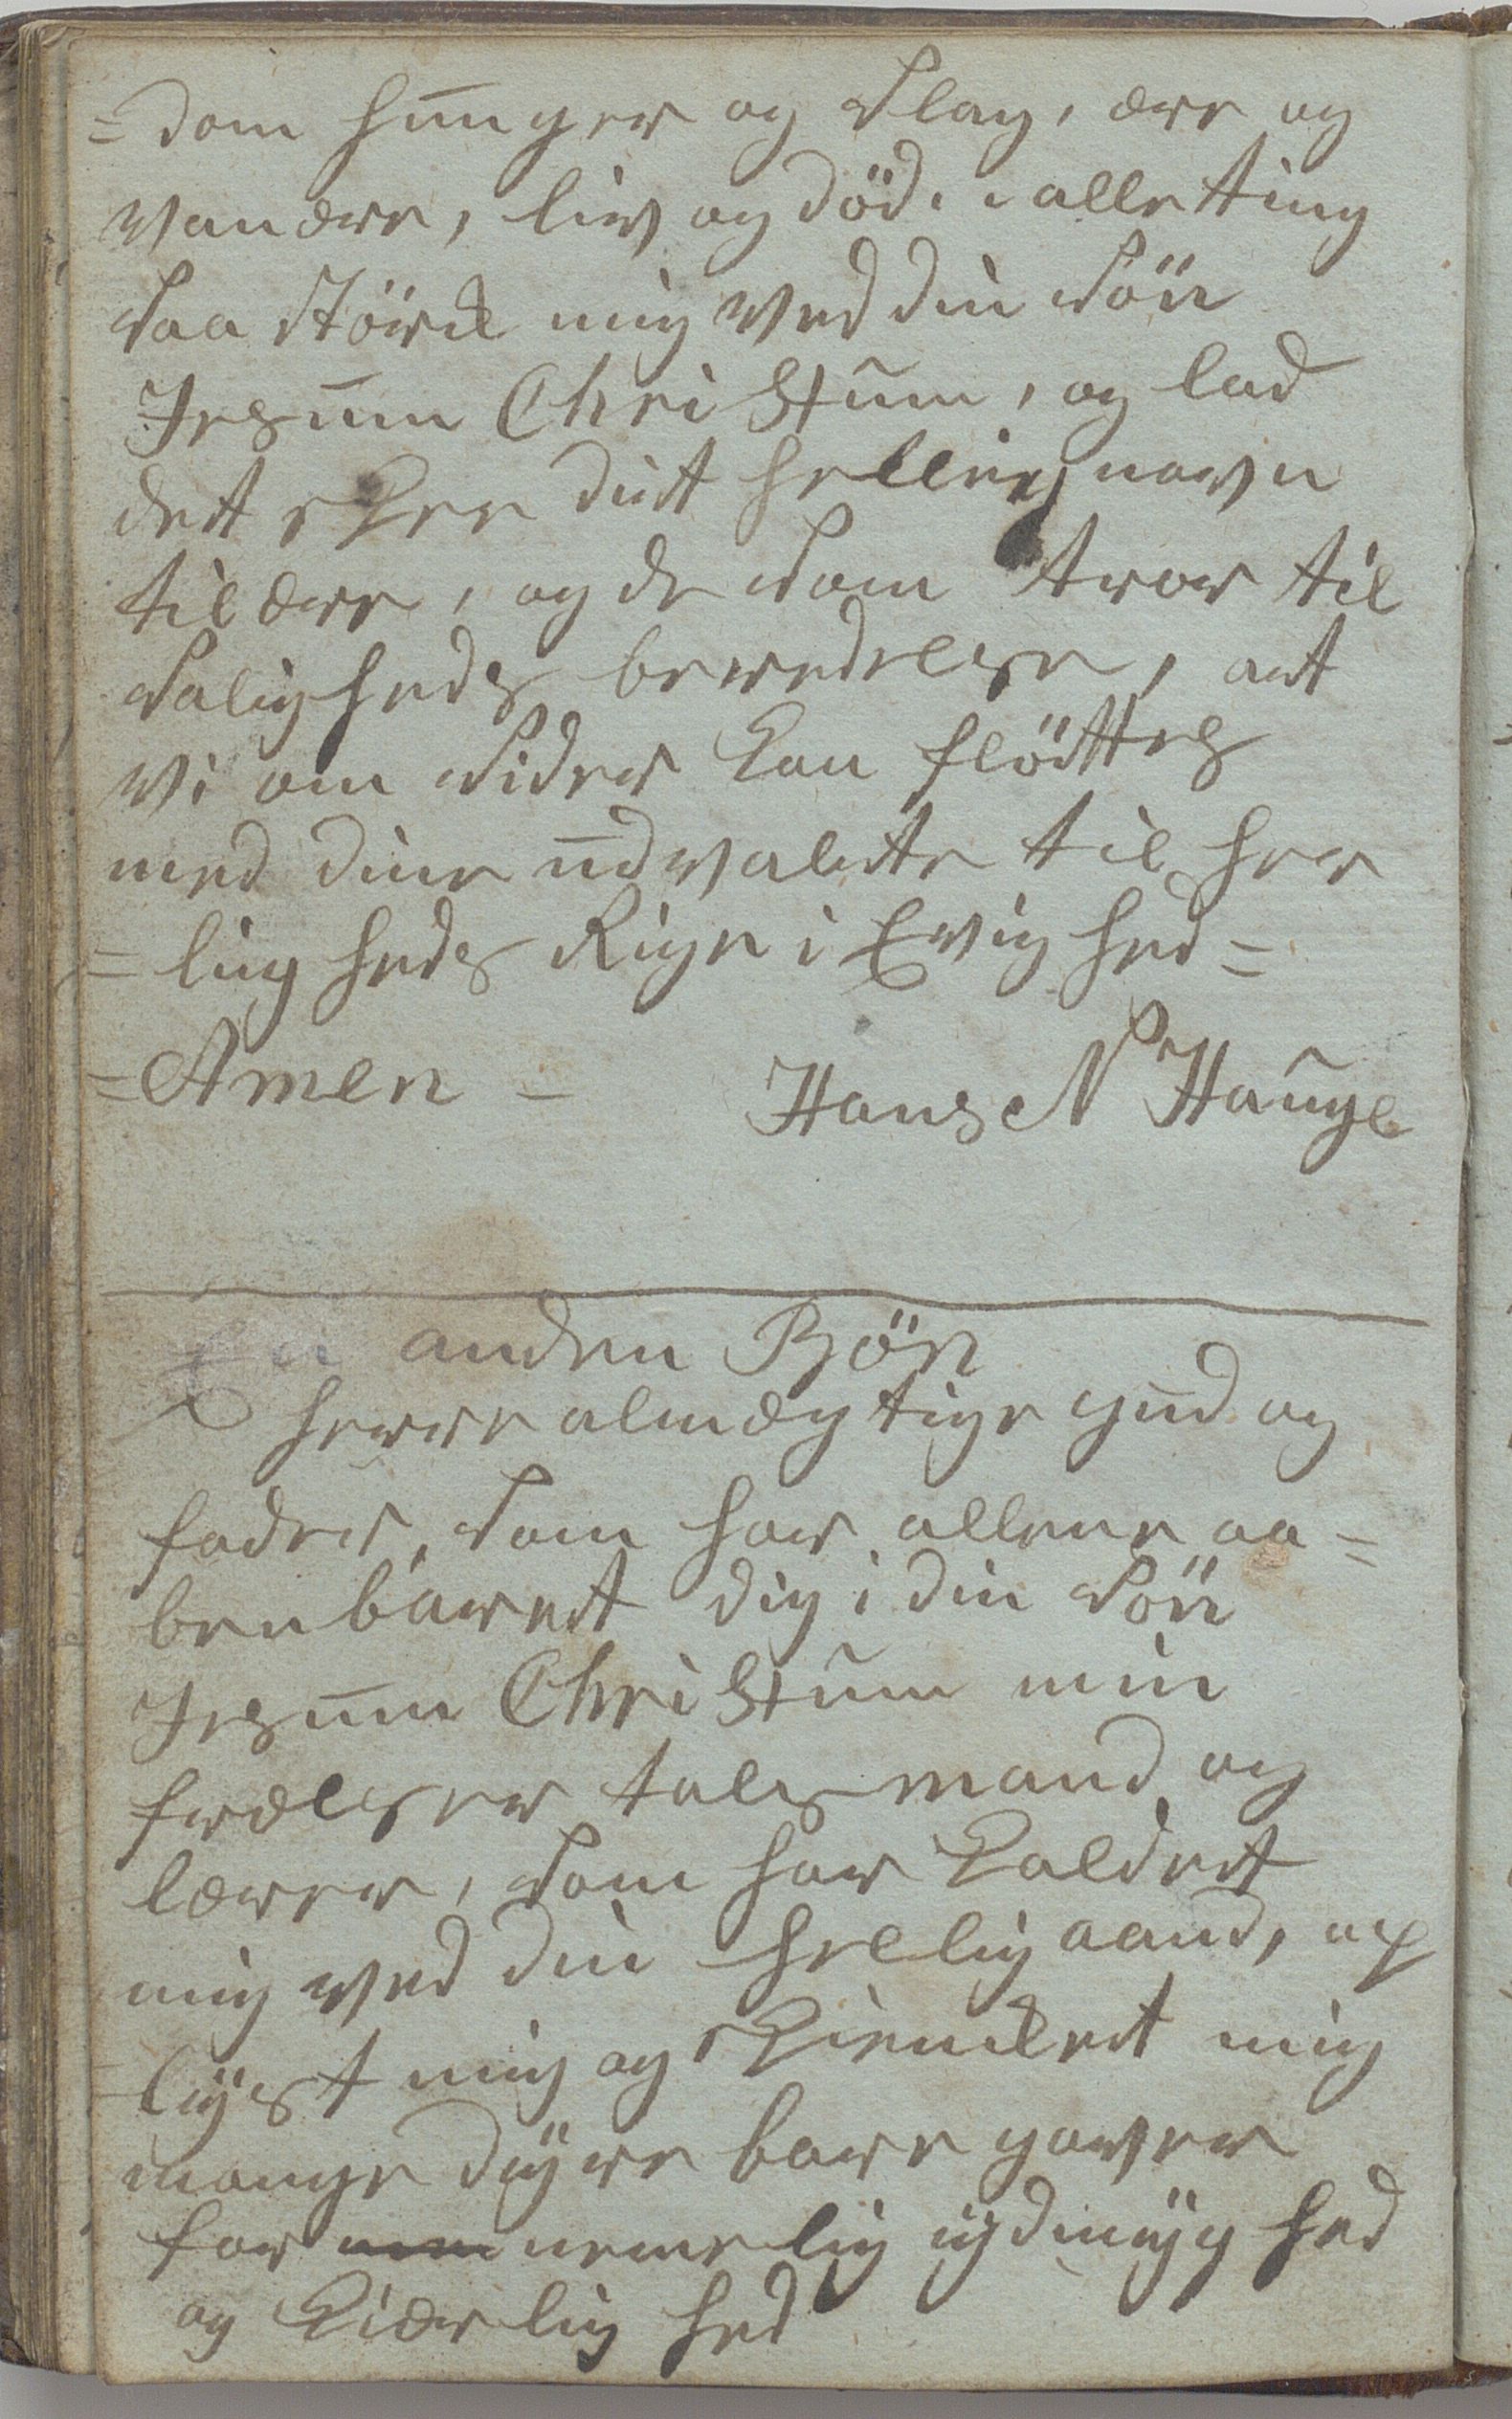 = dom hunger og Slag, ære og
vanære, liv og död. i alle ting
Saa Störck mig ved din Sön
Jesum Christum, og lad
det skee dit hellig navn
til ære, og de Som tror til
Saligheds beredelse, at
vi om Sider kan flöttes
med dine udvalte til her
= ligheds Rige i Evighed =
= Amen = Hans N Hauge
En anden Bön
herre almægtige gud og
fader, Som har allene aa =
benbaret dig i din Sön
Jesum Christum min
frælser talsmand og
lærer, Som har kaldet
mig ved din hellig aand, op
lÿst mig og skiencket mig
mange dÿre bare gaver
for nemelig ÿdmÿg hed
og kiærlig hed